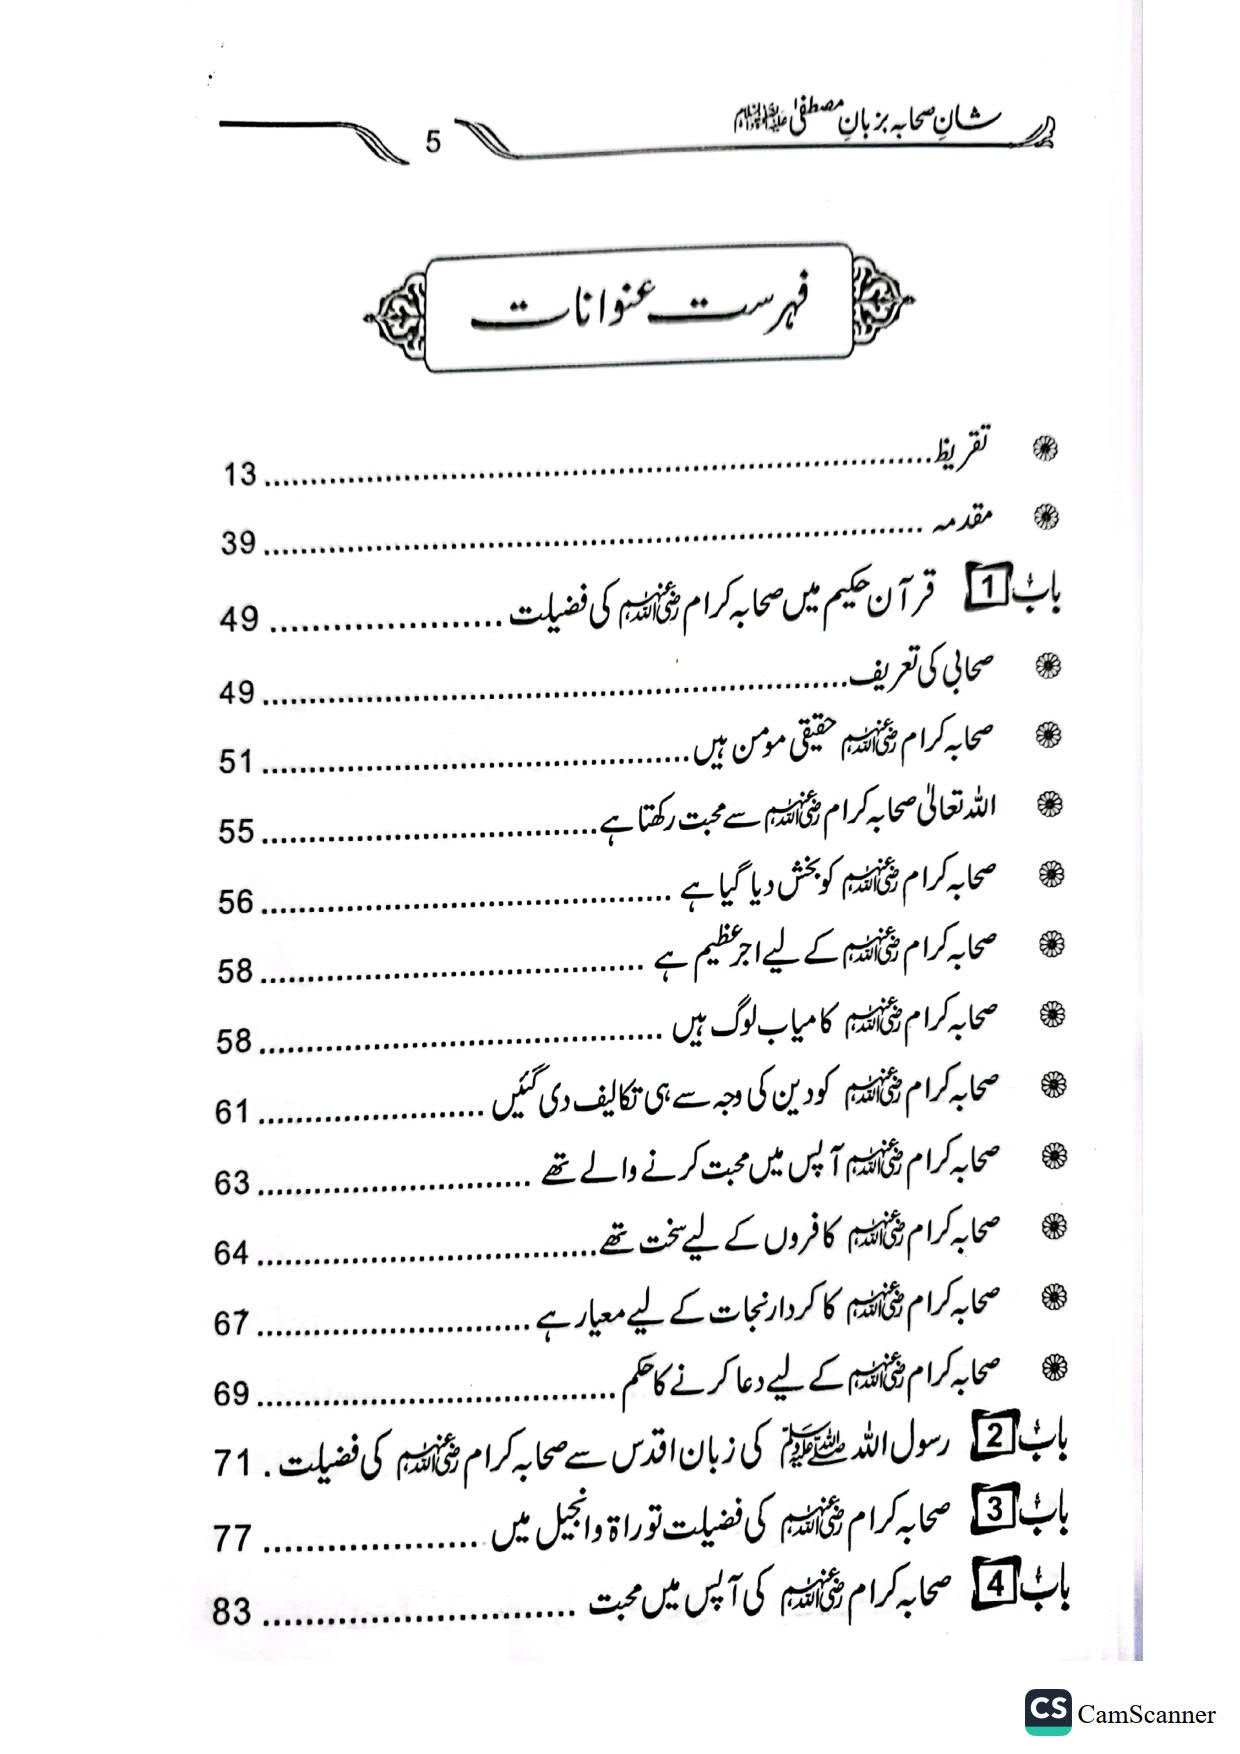 شانِ صحابہ بزبانِ مصطفیٰ ﷺ
5
فہرست عنوانات
تقریظ ........ 13
مقدمہ ........ 39
باب 1 قرآن حکیم میں صحابہ کرام رضی اللہ عنہم کی فضیلت ........ 49
صحابی کی تعریف ........ 49
صحابہ کرام رضی اللہ عنہم حقیقی مومن ہیں ........ 51
اللہ تعالیٰ صحابہ کرام رضی اللہ عنہم سے محبت رکھتا ہے ........ 55
صحابہ کرام رضی اللہ عنہم کو بخش دیا گیا ہے ........ 56
صحابہ کرام رضی اللہ عنہم کے لیے اجر عظیم ہے ........ 58
صحابہ کرام رضی اللہ عنہم کامیاب لوگ ہیں ........ 58
صحابہ کرام رضی اللہ عنہم کو دین کی وجہ سے ہی تکالیف دی گئیں ........ 61
صحابہ کرام رضی اللہ عنہم آپس میں محبت کرنے والے تھے ........ 63
صحابہ کرام رضی اللہ عنہم کافروں کے لیے سخت تھے ........ 64
صحابہ کرام رضی اللہ عنہم کا کردار نجات کے لیے معیار ہے ........ 67
صحابہ کرام رضی اللہ عنہم کے لیے دعا کرنے کا حکم ........ 69
باب 2 رسول اللہ ﷺ کی زبان اقدس سے صحابہ کرام رضی اللہ عنہم کی فضیلت . 71
باب 3 صحابہ کرام رضی اللہ عنہم کی فضیلت توراۃ و انجیل میں ........ 77
باب 4 صحابہ کرام رضی اللہ عنہم کی آپس میں محبت ........ 83
CS CamScanner